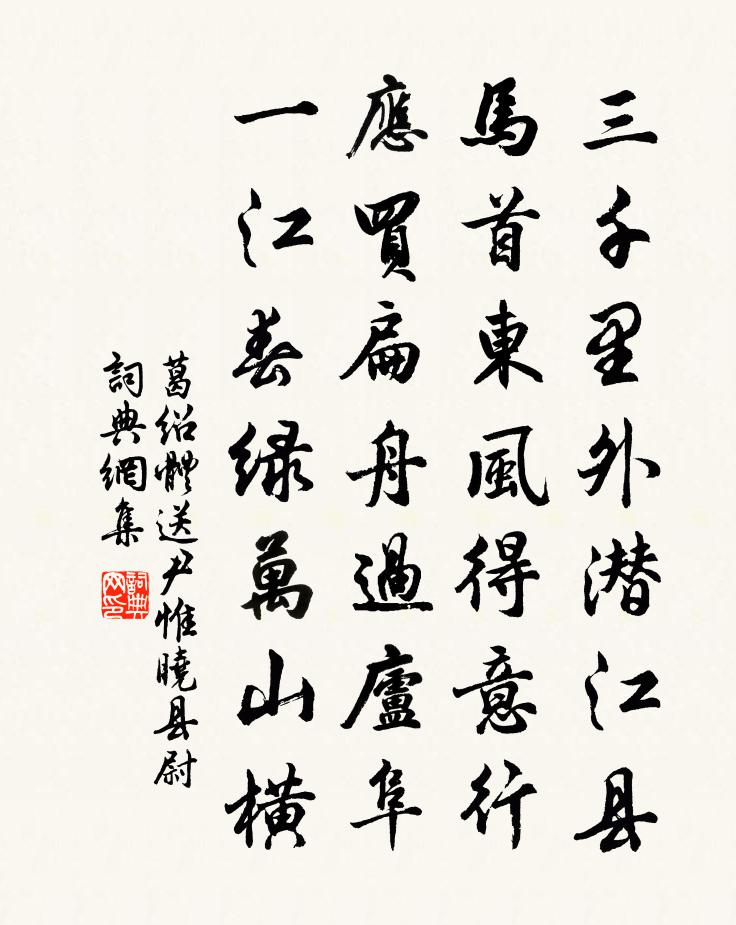 三千里外潜江县
馬首東風得意行
應買扁舟過廬阜
一江春緑萬山横
葛绍體送尹惟曉县尉
詞典網集
詞典網印